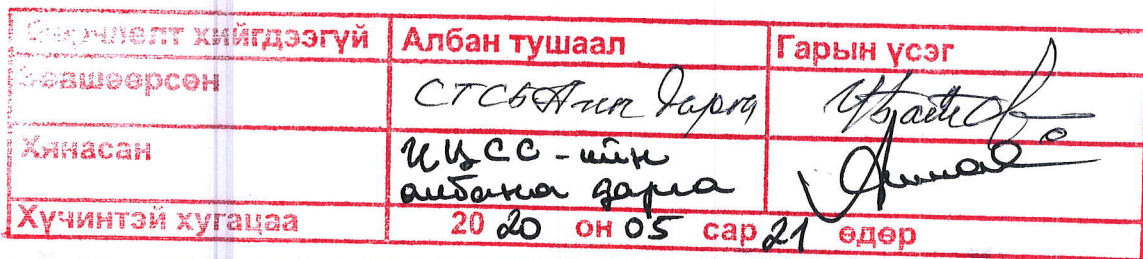 Өөрчлөлт хийгдээгүй Албан тушаал Гарын үсэг
Зөвшөөрсөн СТСБА-ны дарга
Хянасан ИЦСС-ийн
албаны дарга
Хүчинтэй хугацаа 2020 он 05 сар 21 өдөр